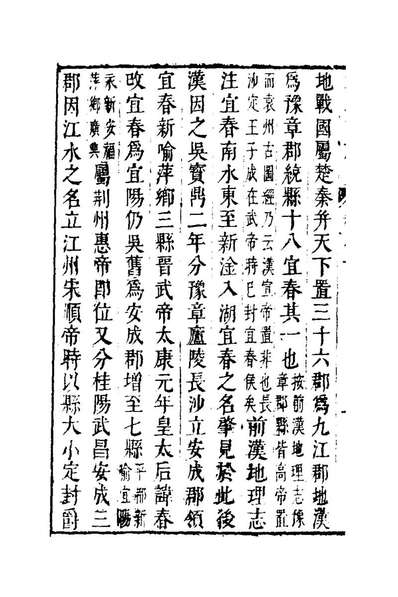 地戰國屬楚秦并天下置三十六郡為九江郡地漢
為豫章郡統縣十八宜春其一也按前漢地理志豫章郡縣皆高帝置
而袁州古圖經乃云漢宣帝置非也長沙定王子成在武帝時已封宜春侯矣前漢地理志
注宜春南水東至新淦入湖宜春之名肇見於此後
漢因之吳寶鼎二年分豫章廬陵長沙立安成郡領
宜春新喻萍鄉三縣晉武帝太康元年皇太后諱春
改宜春為宜陽仍吳舊為安成郡增至七縣平都新喻宜陽
永新安福萍鄉廣興屬荆州惠帝即位又分桂陽武昌安成三
郡因江水之名立江州宋順帝時以縣大小定封爵